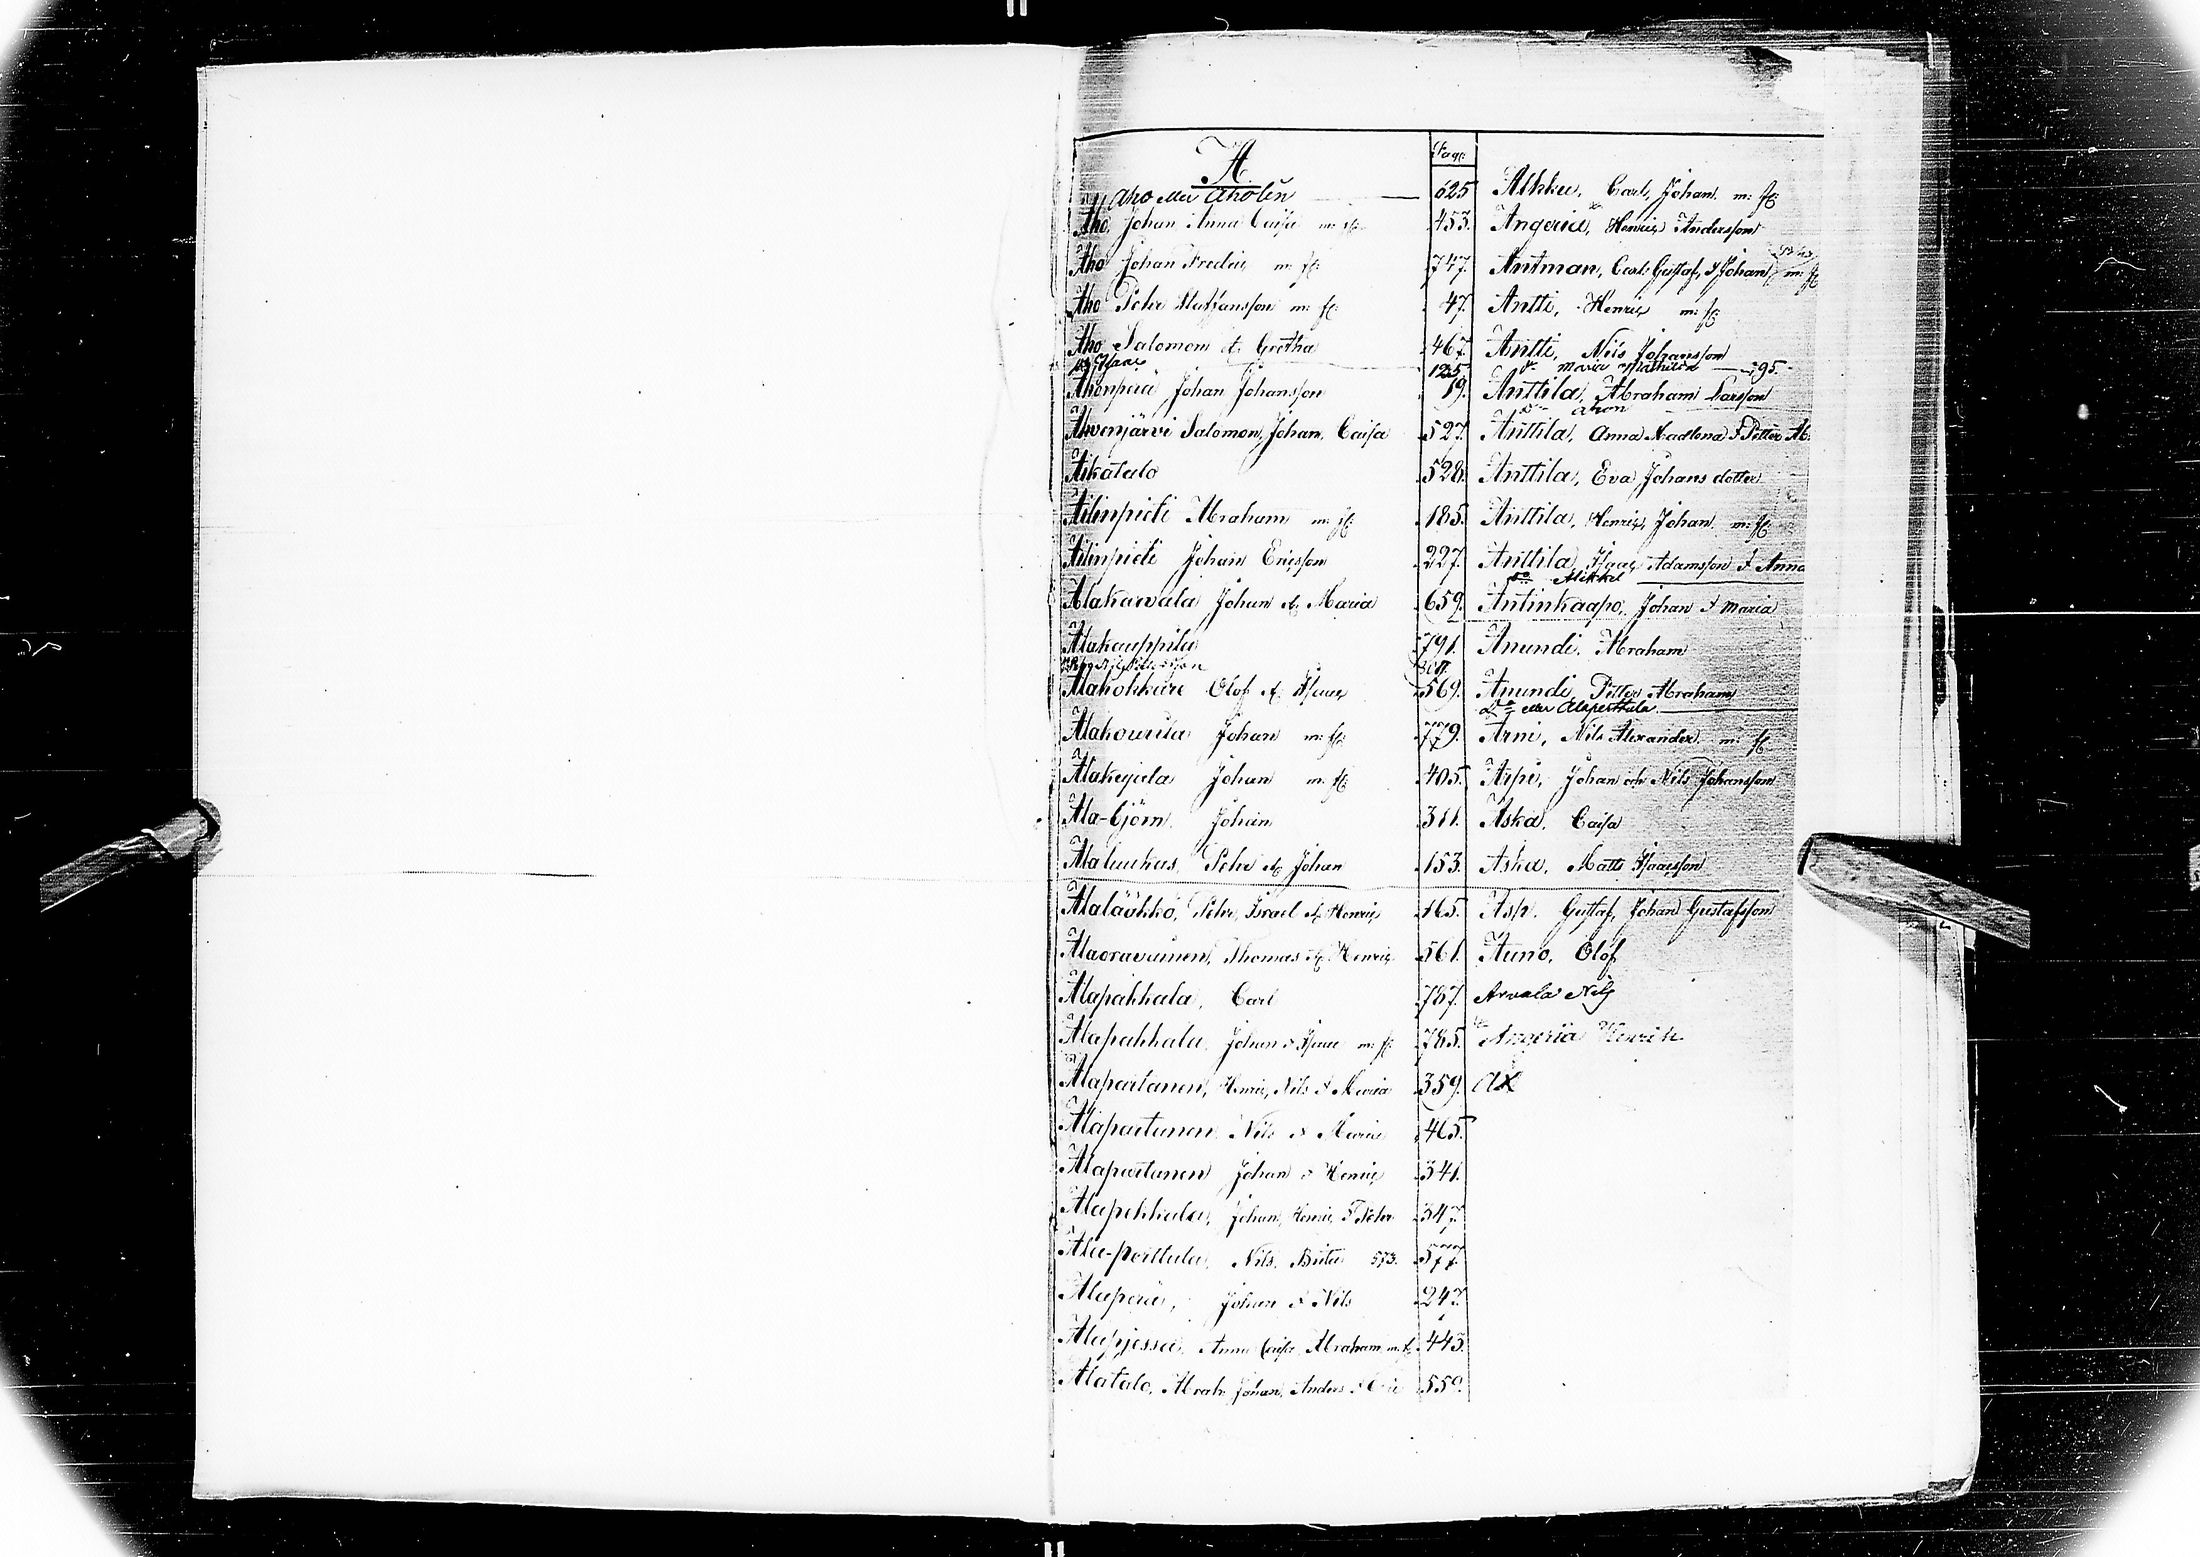 A
Page
Aho eller Aholén 625
Aho, Johan Anna Caisa m: fl: 453.
Aho Johan Fredric m: fl: 747.
Aho Pehr Matsansson m: fl: 47.
Aho Salomon & Gretha 467.
125
Ahonperä Johan Johansson 19.
Ahvenjärvi Salomon, Johan, Caisa 527.
Aikatalo 528.
Ailinpieti Abraham m: fl: 185.
Ailinpieti Johan Ericsson 227.
Alakarvala Johan & Maria 659.
Alakauppila 791.
307
Alakokkare Olof & Isaac 569.
Alakourila Johan m: fl: 779.
Alakujala Johan m: fl: 405.
Ala-björn, Johan 311.
Alaluukas, Pehr & Johan 153.
Alaläökkö, Pehr, Israel & Henric 165.
Alaoravainen, Thomas & Henric 561.
Alapakkala, Carl 787.
Alapakkala, Johan & Isaac m: fl: 785.
Alapartanen, Henric, Nils & Maria 359.
Alapartanen Nils & Maria 465.
Alapartanen Johan & Henric 341.
Alapekkala, Johan, Henric & Peter 347.
Ala-perttula, Nils, Brita 573. 577
Alaperä, Johan & Nils 247.
Alapjessa, Anna Caisa, Abraham m. fl. 443.
Alatalo, Abrah: Johan, Anders 559.
Alkku, Carl, Johan m: fl:
Angeriä, Henric Andersson
Antman, Carl Gustaf, & Johan m: fl:
Antti, Henric m: fl:
Antti, Nils Johansson
Maria Mathilda 95.
Anttila, Abraham Larsson
D:o Aron
Anttila, Anna Madlena & Petter Ab.
Anttila, Eva Johans dotter
Anttila, Henric, Johan m: fl:
Anttila, Isaac Adamsson & Anna
D:o Mikkel
Antinkaapo, Johan & Maria
Anundi, Abraham
Anundi, Petter Abraham
D:o eller Alaperttula
Arni, Nils Alexander m: fl:
Arpi, Johan och Nils Johansson
Aska, Caisa
Aska, Matts Isaacsson
Asp, Gustaf, Johan Gustafsson
Auno, Olof
Arvola Nils
Angeria Henrik
Ax